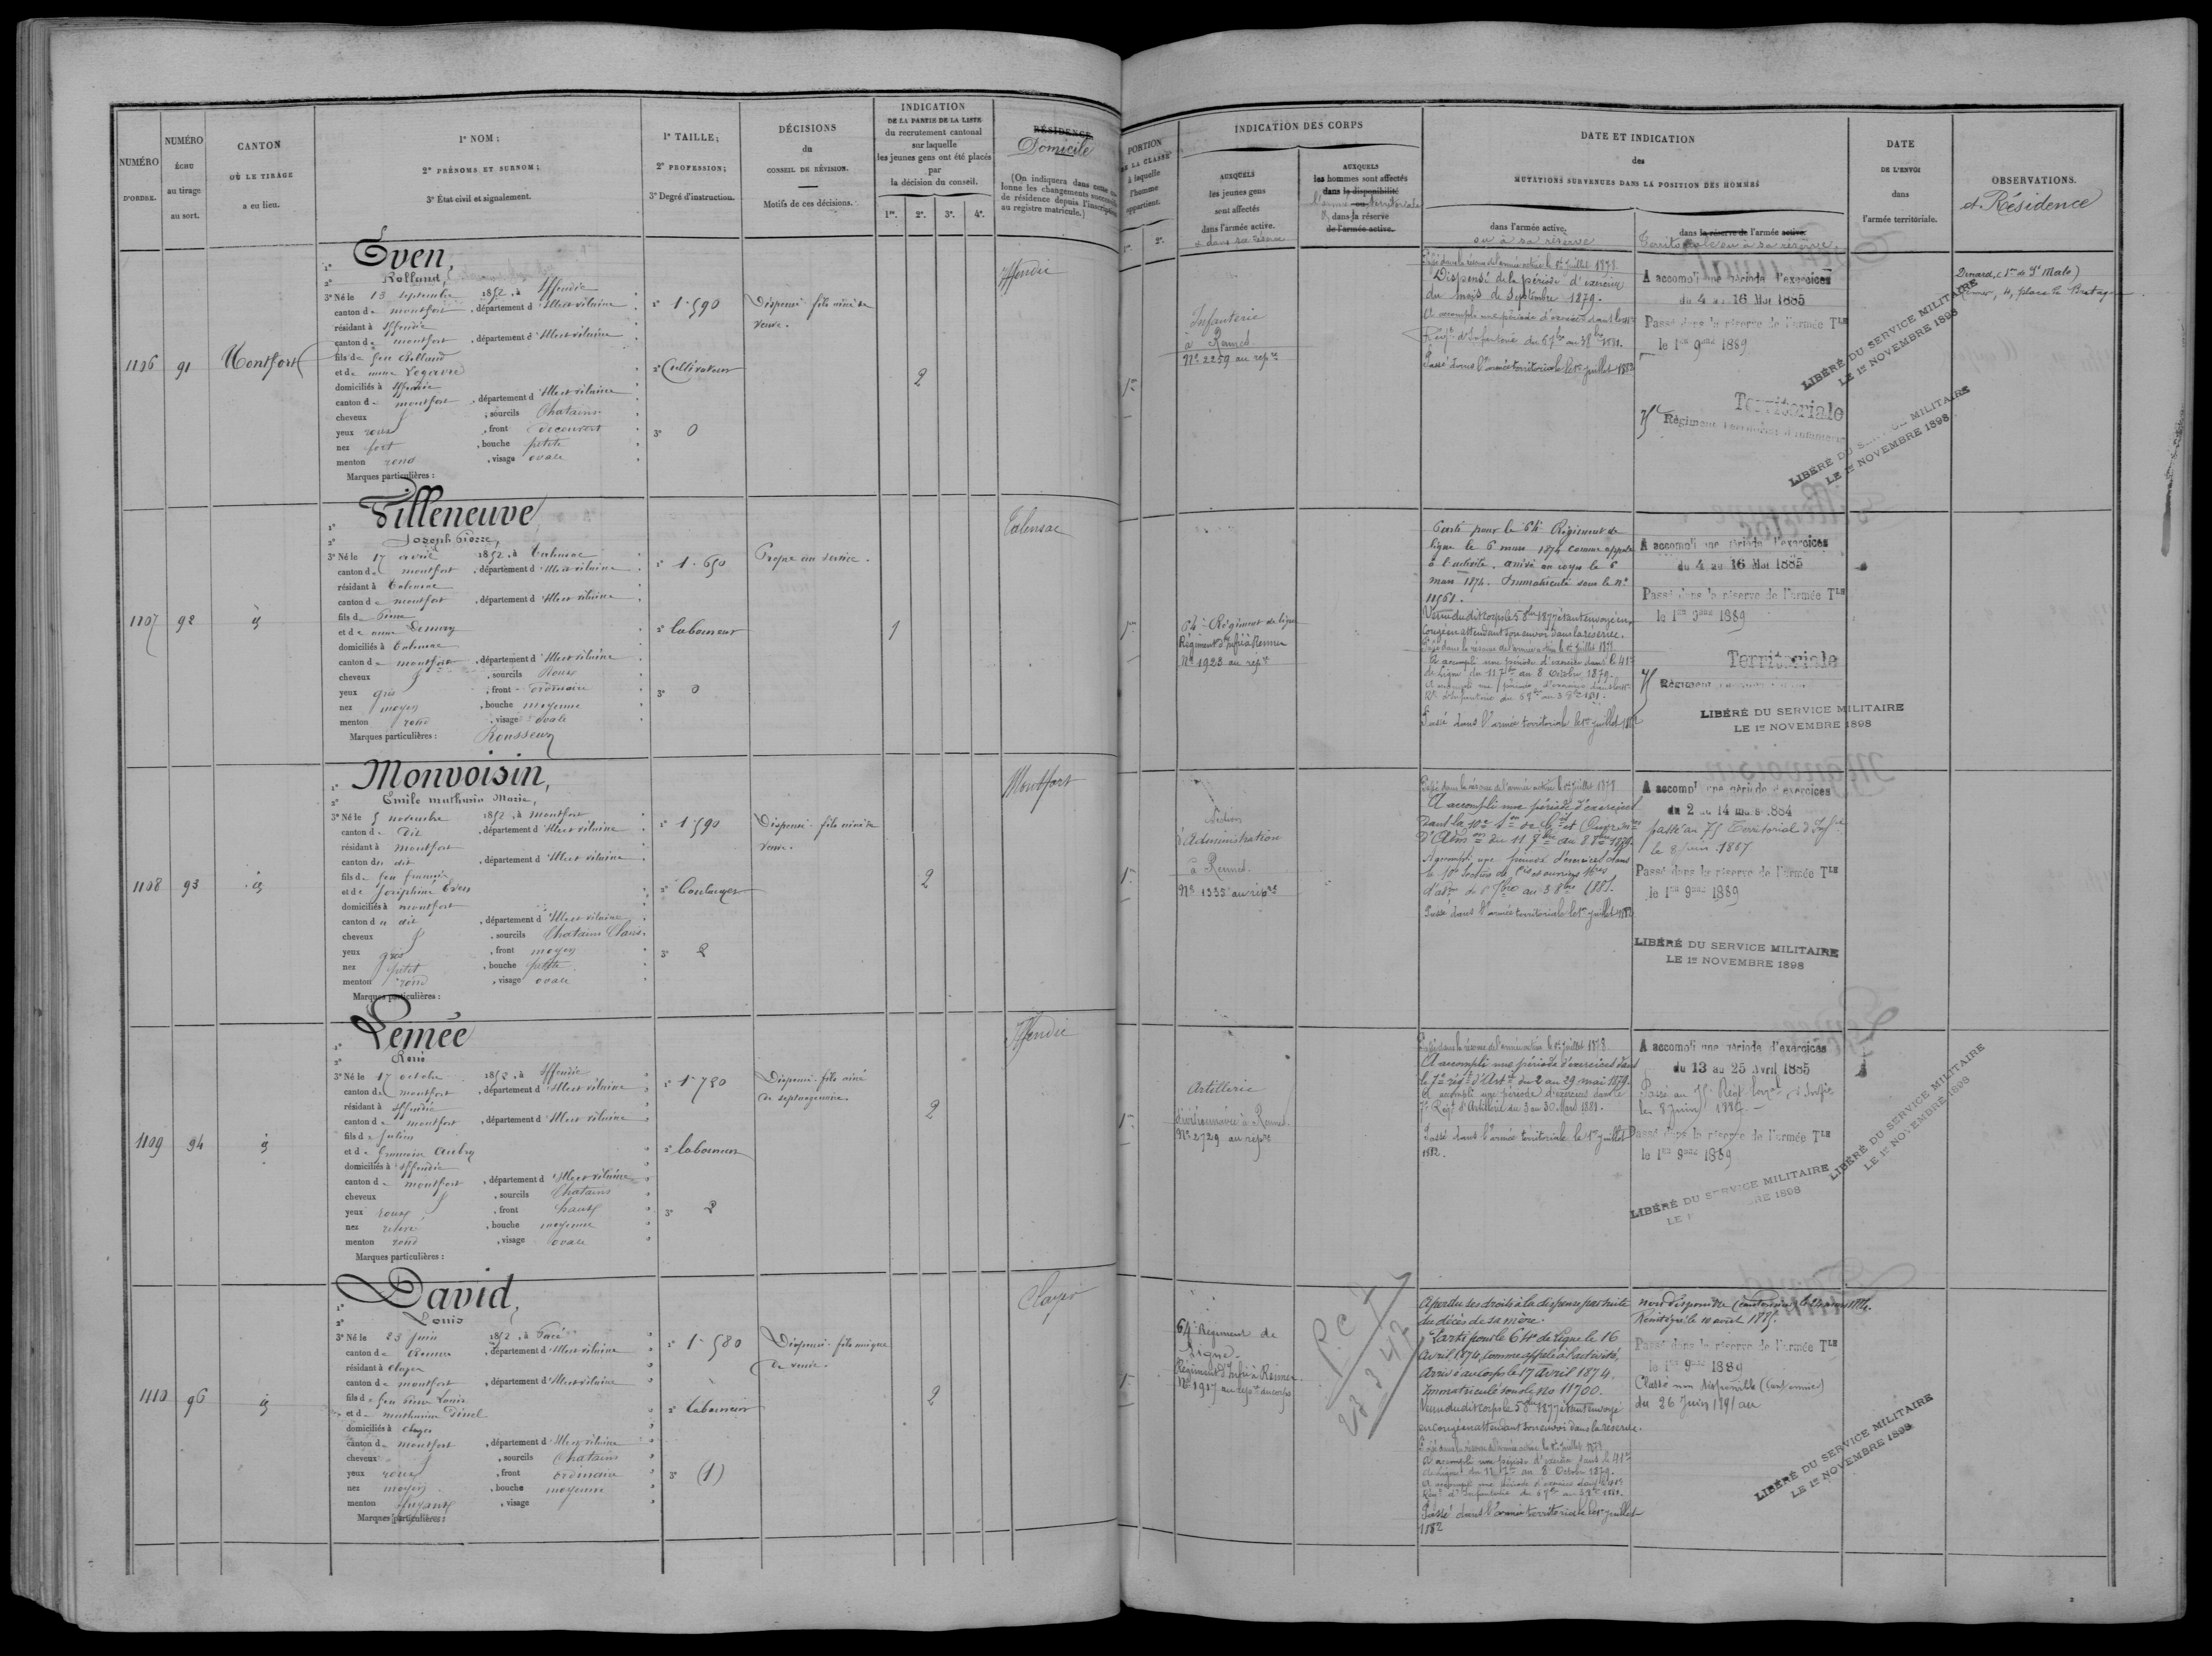 NUMÉRO
D'ORDRE.
NUMÉRO
ÉCHU
au tirage
au sort.
CANTON
OÙ LE TIRAGE
a eu lieu.
1º NOM ;
2º PRÉNOMS ET SURNOM ;
3º État civil et signalement.
1º TAILLE ;
2º PROFESSION ;
3º Degré d'instruction.
DÉCISIONS
du
CONSEIL DE RÉVISION.
Motifs de ces décisions.
INDICATION
DE LA PARTIE DE LA LISTE
du recrutement cantonal
sur laquelle
les jeunes gens ont été placés
par
la décision du conseil.
1re. 2e. 3e. 4e.
RÉSIDENCE
Domicile
(On indiquera dans cette co-
lonne les changements successifs
de résidence depuis l'inscription
au registre matricule.)
PORTION
DE LA CLASSE
à laquelle
l'homme
appartient.
1re. 2e.
INDICATION DES CORPS
AUXQUELS
les jeunes gens
sont affectés
dans l'armée active.
& dans sa réserve
AUXQUELS
les hommes sont affectés
dans la disponibilité
l'armée territoriale
& dans la réserve
de l'armée active.
DATE ET INDICATION
des
MUTATIONS SURVENUES DANS LA POSITION DES HOMMES
dans l'armée active.
ou à sa réserve
dans la réserve de l'armée active.
Territoriale ou à sa réserve.
DATE
DE L'ENVOI
dans
l'armée territoriale.
OBSERVATIONS.
et Résidence
1106
91
Montfort
1º Even,
2º Rolland,
3º Né le 13 septembre 1852, à Iffendic
canton de montfort, département d'Ille et vilaine
résidant à Iffendic
canton de montfort, département d'Ille et vilaine
fils de feu Rolland
et de anne Legavre
domiciliés à Iffendic
canton de montfort, département d'Ille et vilaine
cheveux &, sourcils Chatains
yeux roux, front découvert
nez fort, bouche petite
menton rond, visage ovale
Marques particulières :
1º 1.590
2º Cultivateur
3º 0
Dispensé. fils aîné de
veuve.
2
Iffendic
1re
Infanterie
à Rennes
Nº 2259 au repre
Passé dans la réserve de l'armée active le 1er juillet 1878.
Dispensé de la période d'exercices
du mois de Septembre 1879.
A accompli une période d'exercices dans le 41e
Régt d'Infanterie du 6 7bre au 3 8bre 1881.
Passé dans l'armée territoriale le 1er juillet 1882
A accompli une période d'exercices
du 4 au 16 Mai 1885
Passé dans la réserve de l'armée Tle
le 1er 9bre 1889
Territoriale
75e Régiment Territorial d'Infanterie
LIBÉRÉ DU SERVICE MILITAIRE
LE 1er NOVEMBRE 1898
LIBÉRÉ DU SERVICE MILITAIRE
LE 1er NOVEMBRE 1898
Dinard, (1er de St Malo)
Rennes, 4, place de Bretagne.
1107
92
id
1º Villeneuve,
2º Joseph Pierre,
3º Né le 17 avril 1852, à Talensac
canton de montfort, département d'Ille et vilaine
résidant à Talensac
canton de montfort, département d'Ille et vilaine
fils de Pierre
et de anne Demay
domiciliés à Talensac
canton de montfort, département d'Ille et vilaine
cheveux &, sourcils Roux
yeux gris, front ordinaire
nez moyen, bouche moyenne
menton rond, visage ovale
Marques particulières : Rousseurs
1º 1.650
2º laboureur
3º 0
Propre au service.
1
Talensac
1re
64e Régiment de ligne
Régiment d'Infie à Rennes
Nº 1923 au repre
Parti pour le 64e Régiment de
ligne le 6 mars 1874 comme appelé
à l'activité. arrivé au corps le 6
mars 1874. Immatriculé sous le nº
11561.
Venu du dit corps le 5 8bre 1877 étant envoyé en
congé en attendant son envoi dans la réserve.
Passé dans la réserve de l'armée active le 1er juillet 1878
A accompli une période d'exercices dans le 41e
de ligne du 11 7bre au 8 Octobre 1879.
A accompli une période d'exercices dans le 41e
Rt d'Infanterie du 6 7bre au 3 8bre 1881.
Passé dans l'armée territoriale le 1er juillet 1882
A accompli une période d'exercices
du 4 au 16 Mai 1885
Passé dans la réserve de l'armée Tle
le 1er 9bre 1889
Territoriale
75 Régiment
LIBÉRÉ DU SERVICE MILITAIRE
LE 1er NOVEMBRE 1898
1108
93
id
1º Monvoisin,
2º Emile mathurin Marie,
3º Né le 5 novembre 1852, à montfort
canton de dit, département d'Ille et vilaine
résidant à montfort
canton du dit, département d'Ille et vilaine
fils de feu françois
et de Joséphine Even
domiciliés à montfort
canton du dit, département d'Ille et vilaine
cheveux &, sourcils Chatains Clairs
yeux gris, front moyen
nez petit, bouche petite
menton rond, visage ovale
Marques particulières :
1º 1.590
2º Boulanger
3º 2
Dispensé. fils aîné de
veuve.
2
Montfort
1re
Section
d'Administration
à Rennes
Nº 1333 au repre
Passé dans la réserve de l'armée active le 1er juillet 1878
A accompli une période d'exercices
dans la 10e Son de Cis et Ouvriers
d'Admon du 11 7bre au 8 8bre 1879.
A accompli une période d'exercices dans
la 10e Section de Cis et ouvriers mres
d'admon du 6 7bre au 3 8bre 1881.
Passé dans l'armée territoriale le 1er juillet 1882
A accompli une période d'exercices
du 2 au 14 mars 1884
passé au 75 Territorial d'Infie
le 8 juin 1887
Passé dans la réserve de l'armée Tle
le 1er 9bre 1889
LIBÉRÉ DU SERVICE MILITAIRE
LE 1er NOVEMBRE 1898
1109
94
id
1º Lemée
2º René
3º Né le 17 octobre 1852, à Iffendic
canton de montfort, département d'Ille et vilaine
résidant à Iffendic
canton de montfort, département d'Ille et vilaine
fils de Julien
et de Germaine Aubry
domiciliés à Iffendic
canton de montfort, département d'Ille et vilaine
cheveux &, sourcils Chatains
yeux roux, front haut
nez relevé, bouche moyenne
menton rond, visage ovale
Marques particulières :
1º 1.720
2º laboureur
3º 2
Dispensé. fils aîné
de septuagénaire.
2
Iffendic
1re
Artillerie
divisionnaire à Rennes.
Nº 2729 au repre
Passé dans la réserve de l'armée active le 1er juillet 1878
A accompli une période d'exercices dans
le 7e régt d'Artie du 2 au 29 mai 1879.
A accompli une période d'exercices dans le
7e Régt d'Artillerie du 3 au 30 Mars 1881.
Passé dans l'armée territoriale le 1er juillet
1882.
A accompli une période d'exercices
du 13 au 25 Avril 1885
Passé au 75e Régt terral d'Infie
le 8 juin 1887
Passé dans la réserve de l'armée Tle
le 1er 9bre 1889
LIBÉRÉ DU SERVICE MILITAIRE
LIBÉRÉ DU SERVICE MILITAIRE
LE 1er NOVEMBRE 1898
1110
96
id
1º David,
2º Louis
3º Né le 23 juin 1852, à Pacé
canton de Rennes, département d'Ille et vilaine
résidant à Clayes
canton de montfort, département d'Ille et vilaine
fils de feu Pierre Louis
et de mathurine Dinel
domiciliés à Clayes
canton de montfort, département d'Ille et vilaine
cheveux &, sourcils Chatains
yeux roux, front ordinaire
nez moyen, bouche moyenne
menton fuyant, visage
Marques particulières :
1º 1.580
2º laboureur
3º (1)
Dispensé. fils unique
de veuve.
2
Clayes
1re
64e Régiment de
Ligne.
Régiment d'Infie à Rennes.
Nº 1917 au repre du corps
A perdu ses droits à la dispense par suite
du décès de sa mère.
Parti pour le 64e de Ligne le 16
Avril 1874, comme appelé à l'activité,
Arrivé au Corps le 17 Avril 1874.
Immatriculé sous le No 11700.
Venu du dit corps le 5 8bre 1877 étant envoyé
en congé en attendant son envoi dans la réserve.
Passé dans la réserve de l'armée active le 1er juillet 1878
A accompli une période d'exercices dans le 41e
de Ligne du 11 7bre au 8 Octobre 1879.
A accompli une période d'exercices dans le 41e
Régt d'Infanterie du 6 7bre au 3 8bre 1881.
Passé dans l'armée territoriale le 1er juillet
1882
Non disponible (cantonnier)
Réintégré le 10 août 1885.
Passé dans la réserve de l'armée Tle
le 1er 9bre 1889
Classé non disponible (cantonnier)
du 26 Juin 1891 au
LIBÉRÉ DU SERVICE MILITAIRE
LE 1er NOVEMBRE 1898